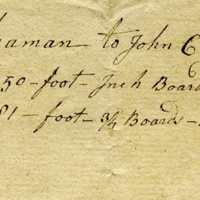 aman to John C
50 - foot - Inch Board
81 - foot - 3/4 Board -